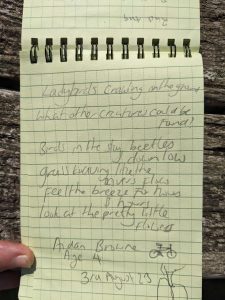 Ladybirds crawing on the ground
What other creatures could be
found?
Birds in the sky beetles
down low
grass burning like the
flies
Feel the breeze for hours
& hours
look at the pretty little
Aidan Browne
Age 4
3rd August 23